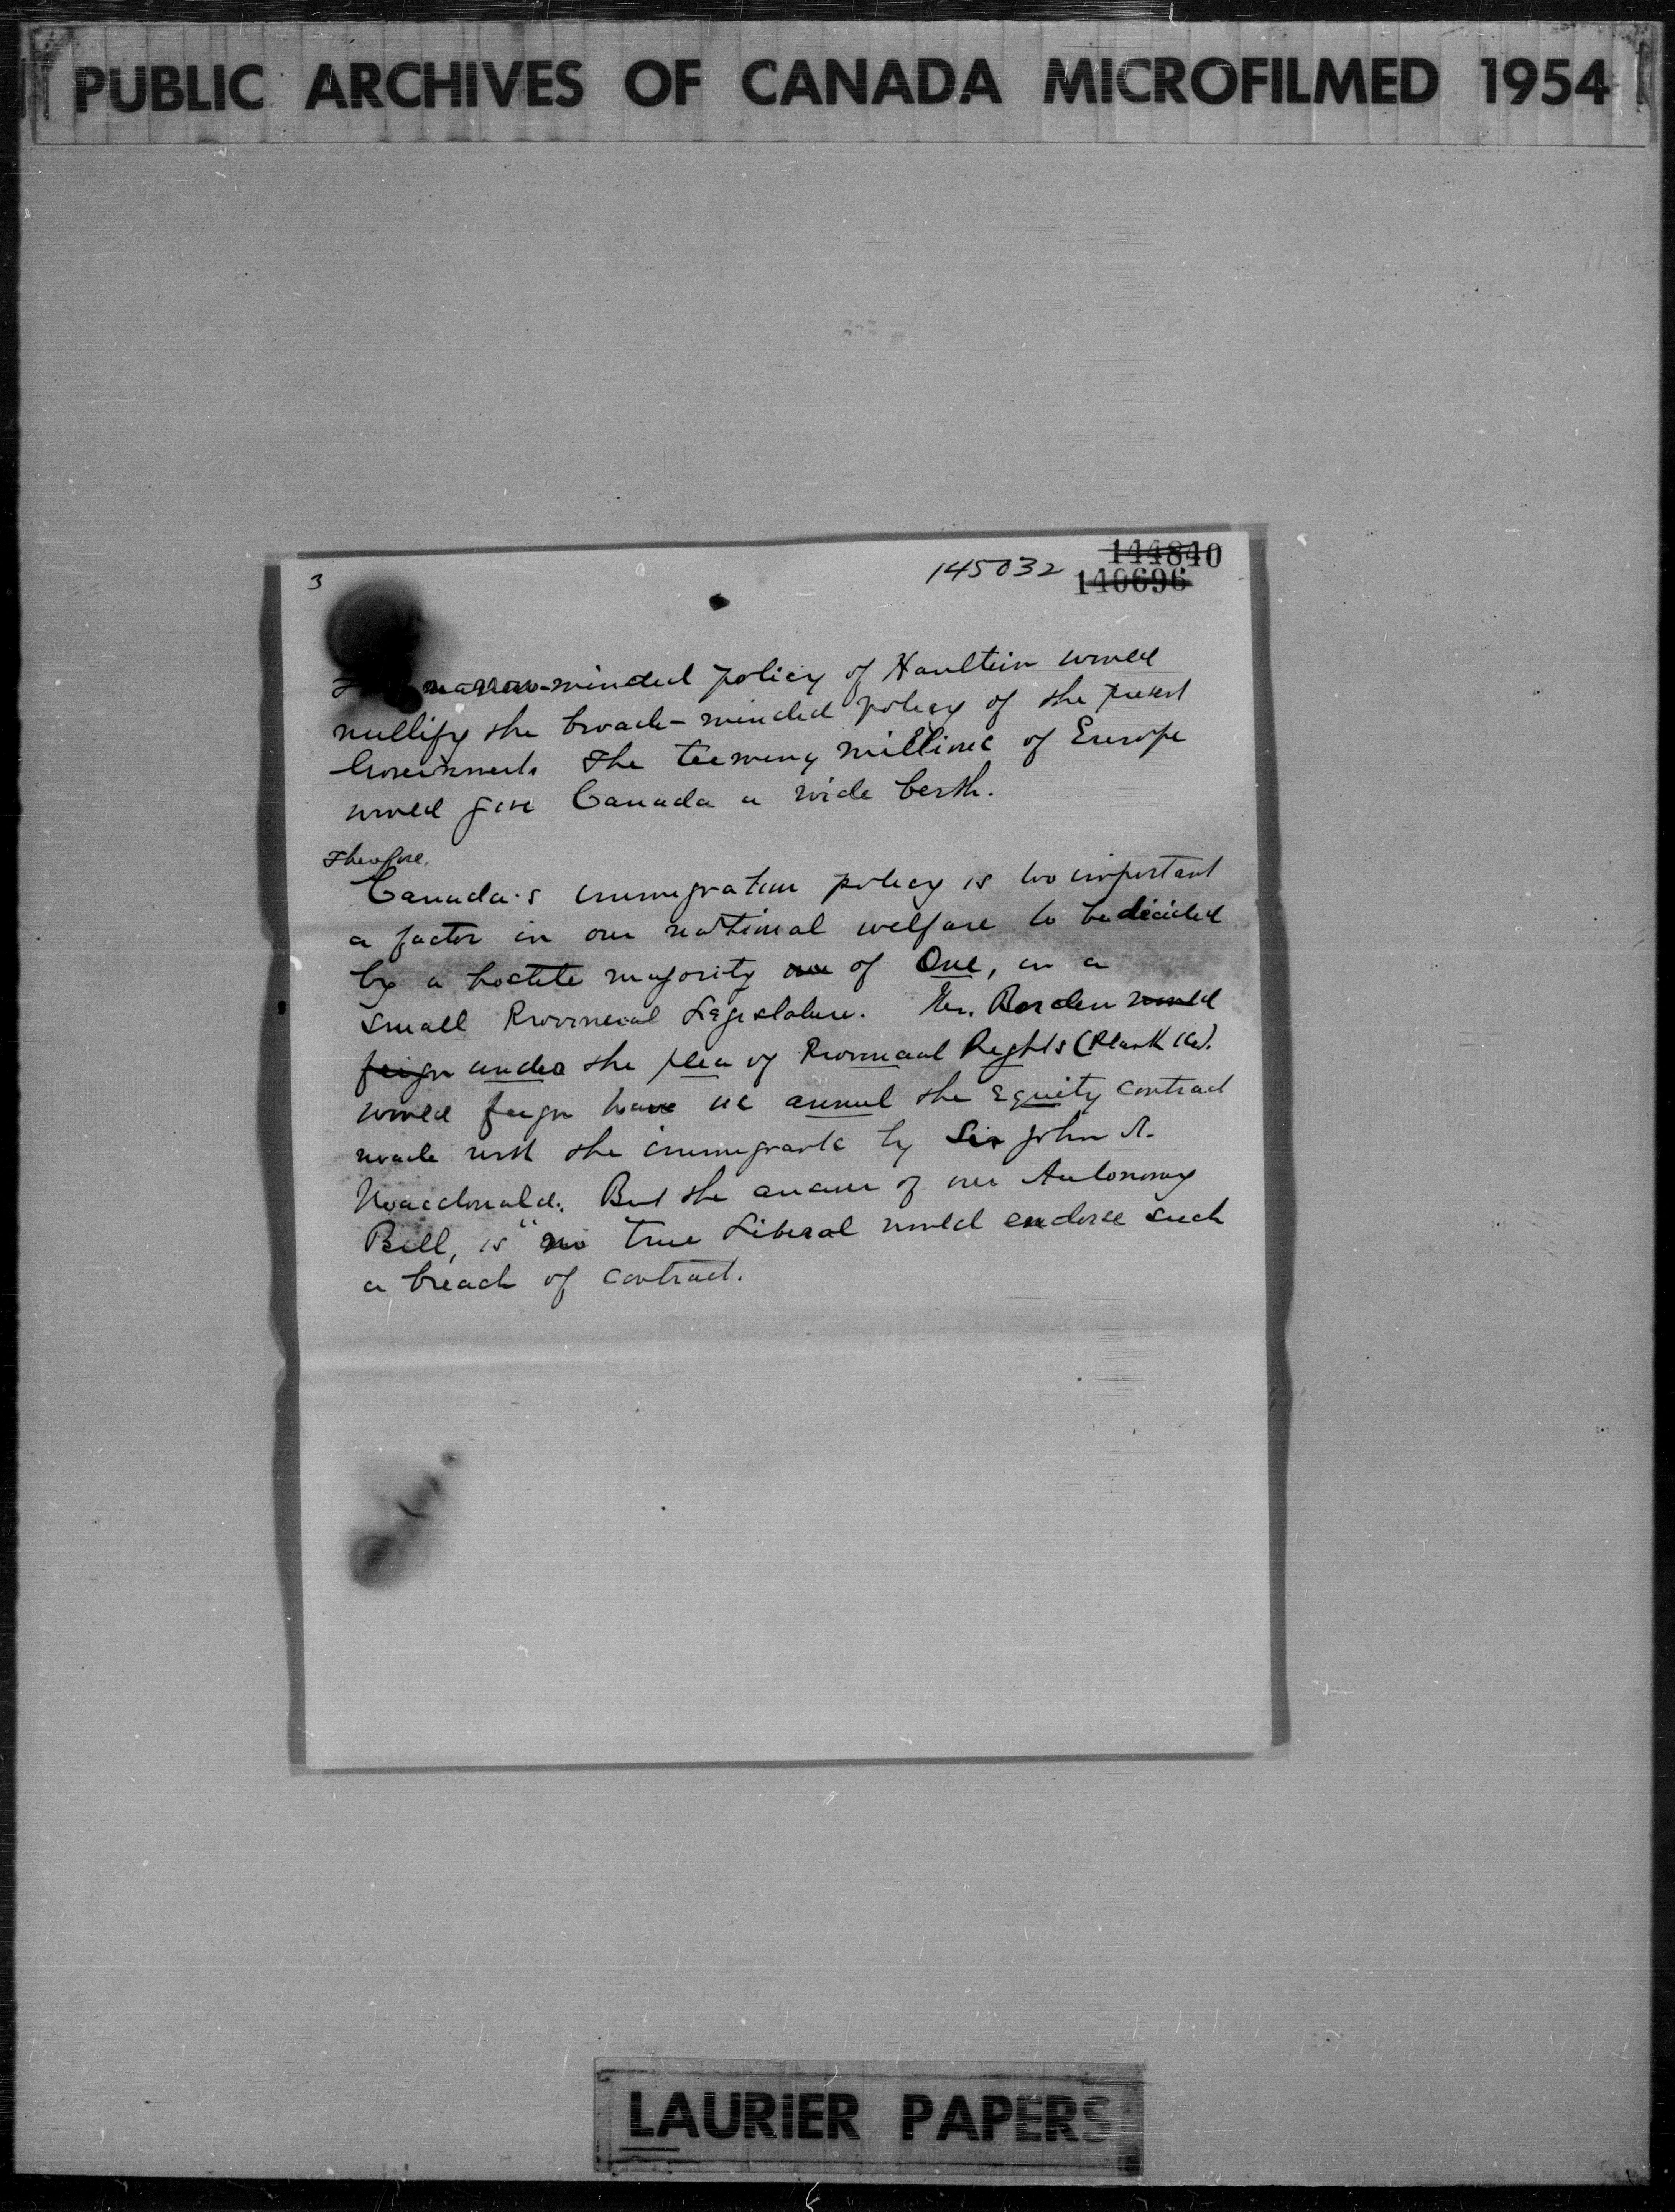 PUBLIC ARCHIVES OF CANADA MICROFILMED 1954
3
145032
144840
140696
narrow-minded policy of Haultein would
nullify the broad-minded policy of the present
Government. The teeming millions of Europe
would give Canada a wide berth.
Therefore,
Canada's immigration policy is too important
a factor in our national welfare to be decided
by a hostile majority of One, in a
small Provincial Legislature. Mr. Borden would
feign under the plea of Provincial Rights (Plank 16).
would feign have us annul the Equity contract
made with the immigrants by Sir John A.
Macdonald. But the answer of our Autonomy
Bill, is "no true Liberal would endorse such
a breach of contract.
LAURIER PAPERS